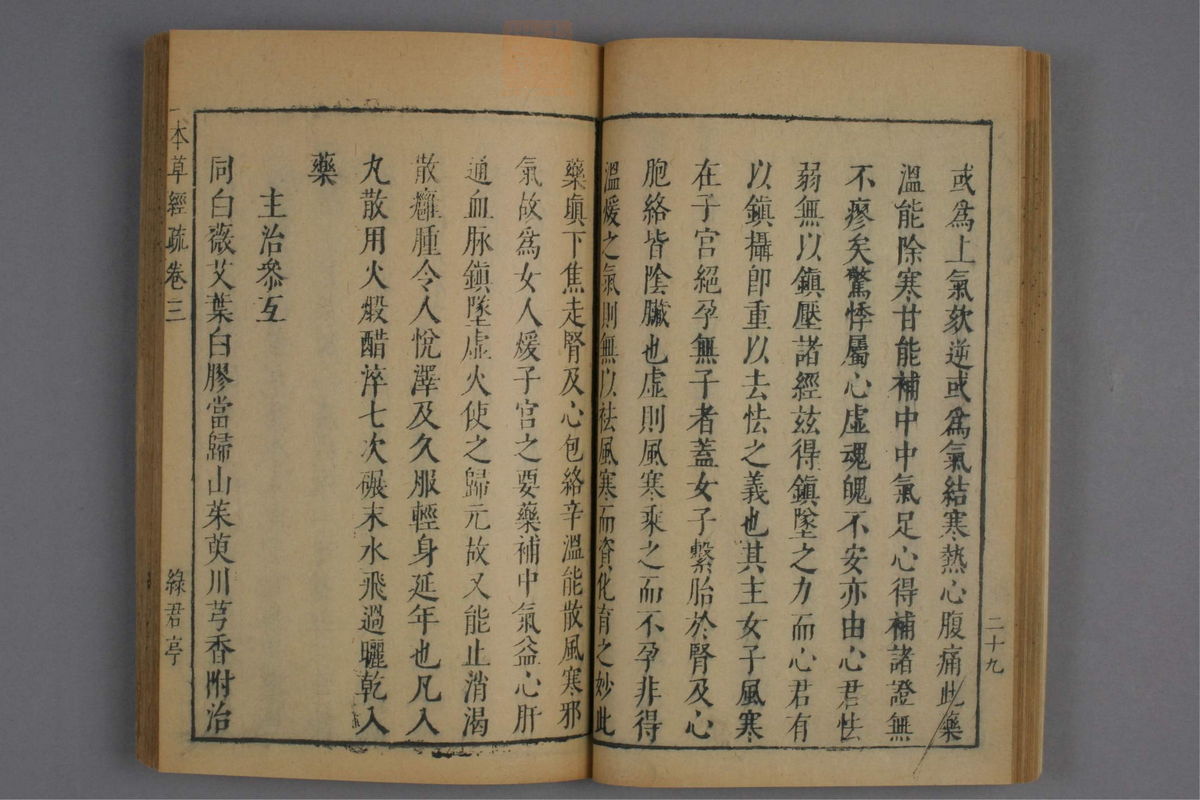 二十九
或爲上氣欬逆或爲氣結寒熱心腹痛此藥
溫能除寒甘能補中中氣足心得補諸證無
不瘳矣驚悸屬心虛魂魄不安亦由心君怯
弱無以鎮壓諸經兹得鎮墜之力而心君有
以鎮攝卽重以去怯之義也其主女子風寒
在子宮絕孕無子者蓋女子繫胎於腎及心
胞絡皆陰臟也虛則風寒乘之而不孕非得
溫煖之氣則無以祛風寒而資化育之妙此
藥塡下焦走腎及心包絡辛溫能散風寒邪
氣故爲女人煖子宮之要藥補中氣益心肝
通血脉鎮墜虛火使之歸元故又能止消渴
散癰腫令人悅澤及久服輕身延年也凡入
丸散用火煅醋淬七次碾末水飛過曬乾入
藥
主治參互
同白薇艾葉白膠當歸山茱萸川芎香附治
本草經疏卷三
綠君亭